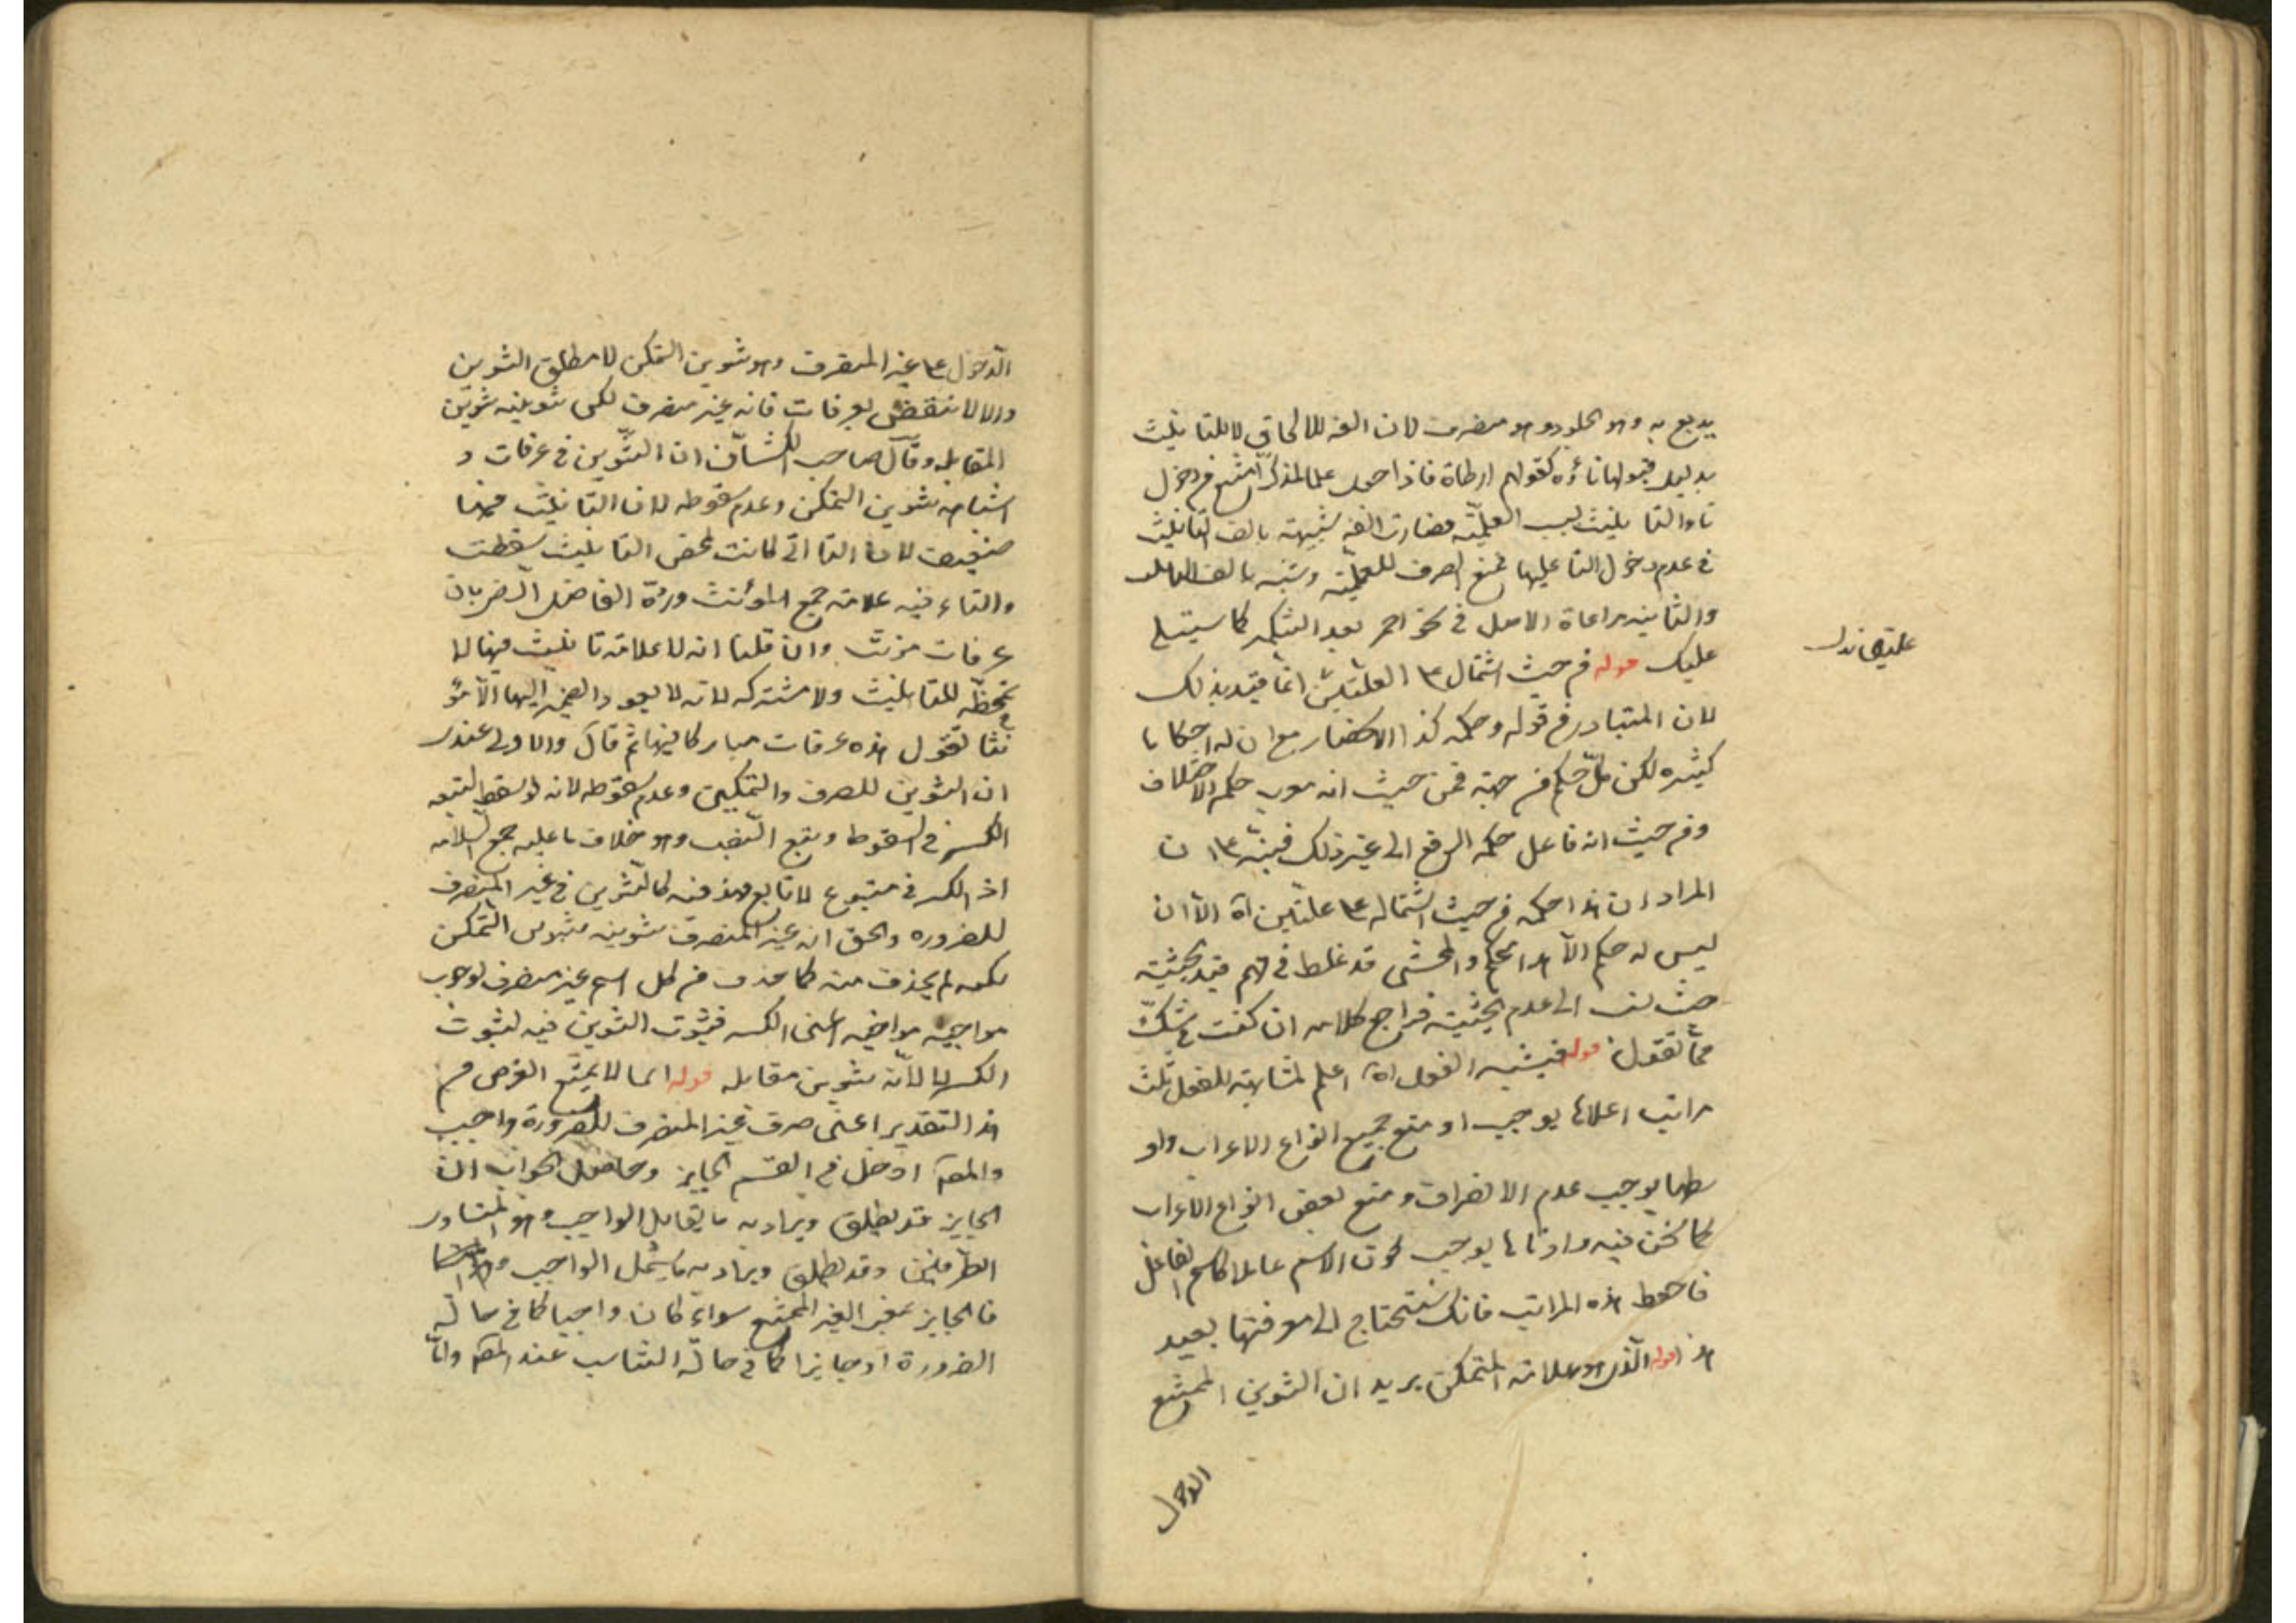 يدبغ به وهو الجلود وهو منصرف لان الفه للالحاق لا للتانيث
بدليل قبولها تاءً كقولهم ارطاة فاذا جعل علما لمذكر امتنع من دخول
تاء التانيث لسبب العلمية فصارت الفه شبيهة بالف التانيث
في عدم دخول التا عليها فمنع الصرف للعلمية وشبه بالف التانيث
والثانيه مراعاة الاصل في نحو احمر بعد التنكير كما سيتلى
عليك قوله من حيث اشتمال على العلتين انما قيد بذلك
لان المتبادر من قوله وحكمه كذا الانحصار مع ان له احكاما
كثيره لكن كل حكم من جهة فمن حيث انه معرب حكم الاختلاف
ومن حيث انه فاعل حكمه الرفع الى غير ذلك فينبه على ان
المراد ان هذا حكمه من حيث اشتماله على علتين اه الا ان
ليس له حكم الا هذا الحكم والمحشى قد غلط في فهم قيد الحيثية
حيث نسب الى عدم الحيثية فراجع كلامه ان كنت في شك
مما نقول قوله فيشبه الفعل اه اعلم لمشابهة للفعل ثلث
مراتب اعلاها يوجب او منع جميع انواع الاعراب واو
سطها يوجب عدم الانصراف ومنع بعض انواع الاعراب
كما نحن فيه وادناها يوجب كون الاسم عاملا كاسم الفاعل
فاحفظ هذه المراتب فانك ستحتاج الى معرفتها بعيد
هذا قوله الذي هو علامة التمكن يريد ان التنوين الممتنع
الدخول
الدخول على غير المنصرف وهو تنوين التمكن لا مطلق التنوين
والا لانتقض بعرفات فانه غير منصرف لكن تنوينه تنوين
المقابلة وقال صاحب الكشاف ان التنوين في عرفات و
اشباهه تنوين التمكن وعدم سقوطه لان التانيث فيها
ضعيف لان التا التي كانت لمحض التانيث سقطت
والتاء فيه علامة جمع المؤنث وردّه الفاضل الرضي بان
عرفات مؤنث وان قلنا انه لا علامة تانيث فيها لا
متمحضة للتانيث ولا مشتركه لانه لا يعود الضمير اليها الا مؤ
نثا تقول هذه عرفات مباركا فيها ثم قال والاولى عندى
ان التنوين للصرف والتمكين وعدم سقوطه لانه لو سقط لتبعه
الكسر في السقوط وتبع النصب وهو خلاف ما عليه جمع السلامه
اذ الكسر فيه متبوع لا تابع فهذه فيه كالتنوين في غير المنصرف
للضروره والحق انه غير المنصرف تنوينه تنوين التمكن
لكنه لم يحذف منه كما حذف من كل اسم غير منصرف لوجوب
الكسر لا لانه تنوين مقابله قوله انما لا يمتنع الغرض من
هذا التقدير اعنى صرف غير المنصرف للضرورة واجب
والمص ادخل في القسم الجايز وحاصل الجواب ان
الجايز قد يطلق ويراد به ما يقابل الواجب وهو المتساوى
الطرفين وقد يطلق ويراد به ما يشمل الواجب
فالجايز بمعنى الغير الممتنع سواء كان واجبا كما في حالة
الضرورة او جايزا كما في حالة التناسب عند المص وانما